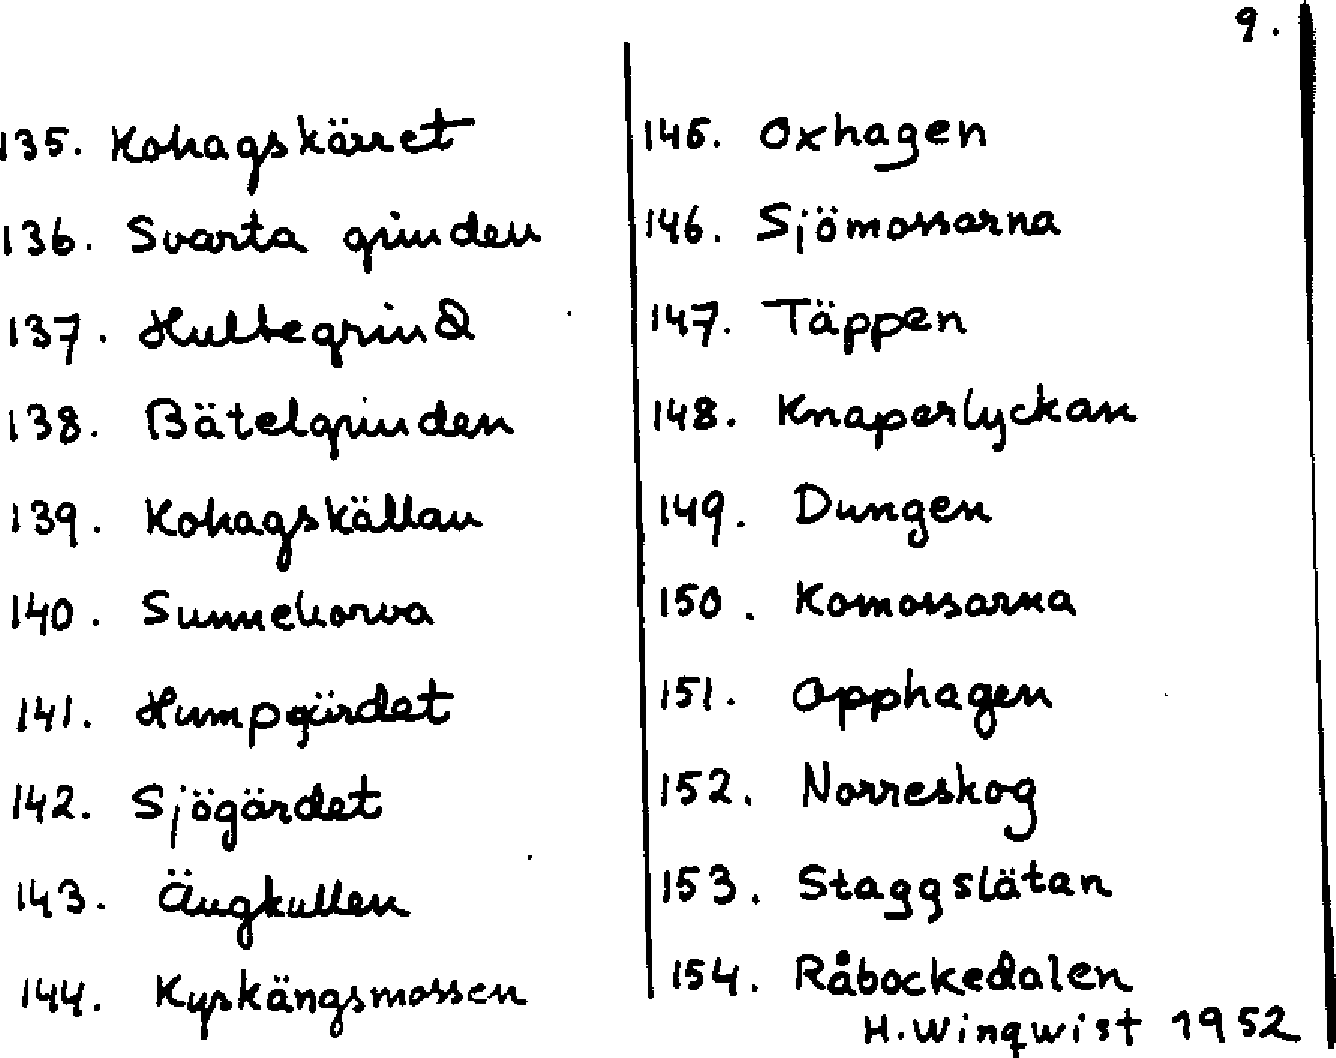 9.
135. Kohagskärret
136. Svarta grinden
137. Hultegrind
138. Bätelgrinden
139. Kohagskällan
140. Sunnehorva
141. Humpgärdet
142. Sjögärdet
143. Ängkullen
144. Kyrkängsmossen
145. Oxhagen
146. Sjömossarna
147. Täppen
148. Knaperlyckan
149. Dungen
150. Komossarna
151. Apphagen
152. Norreskog
153. Staggslätan
154. Råbockedalen
H. Winqwist 1952